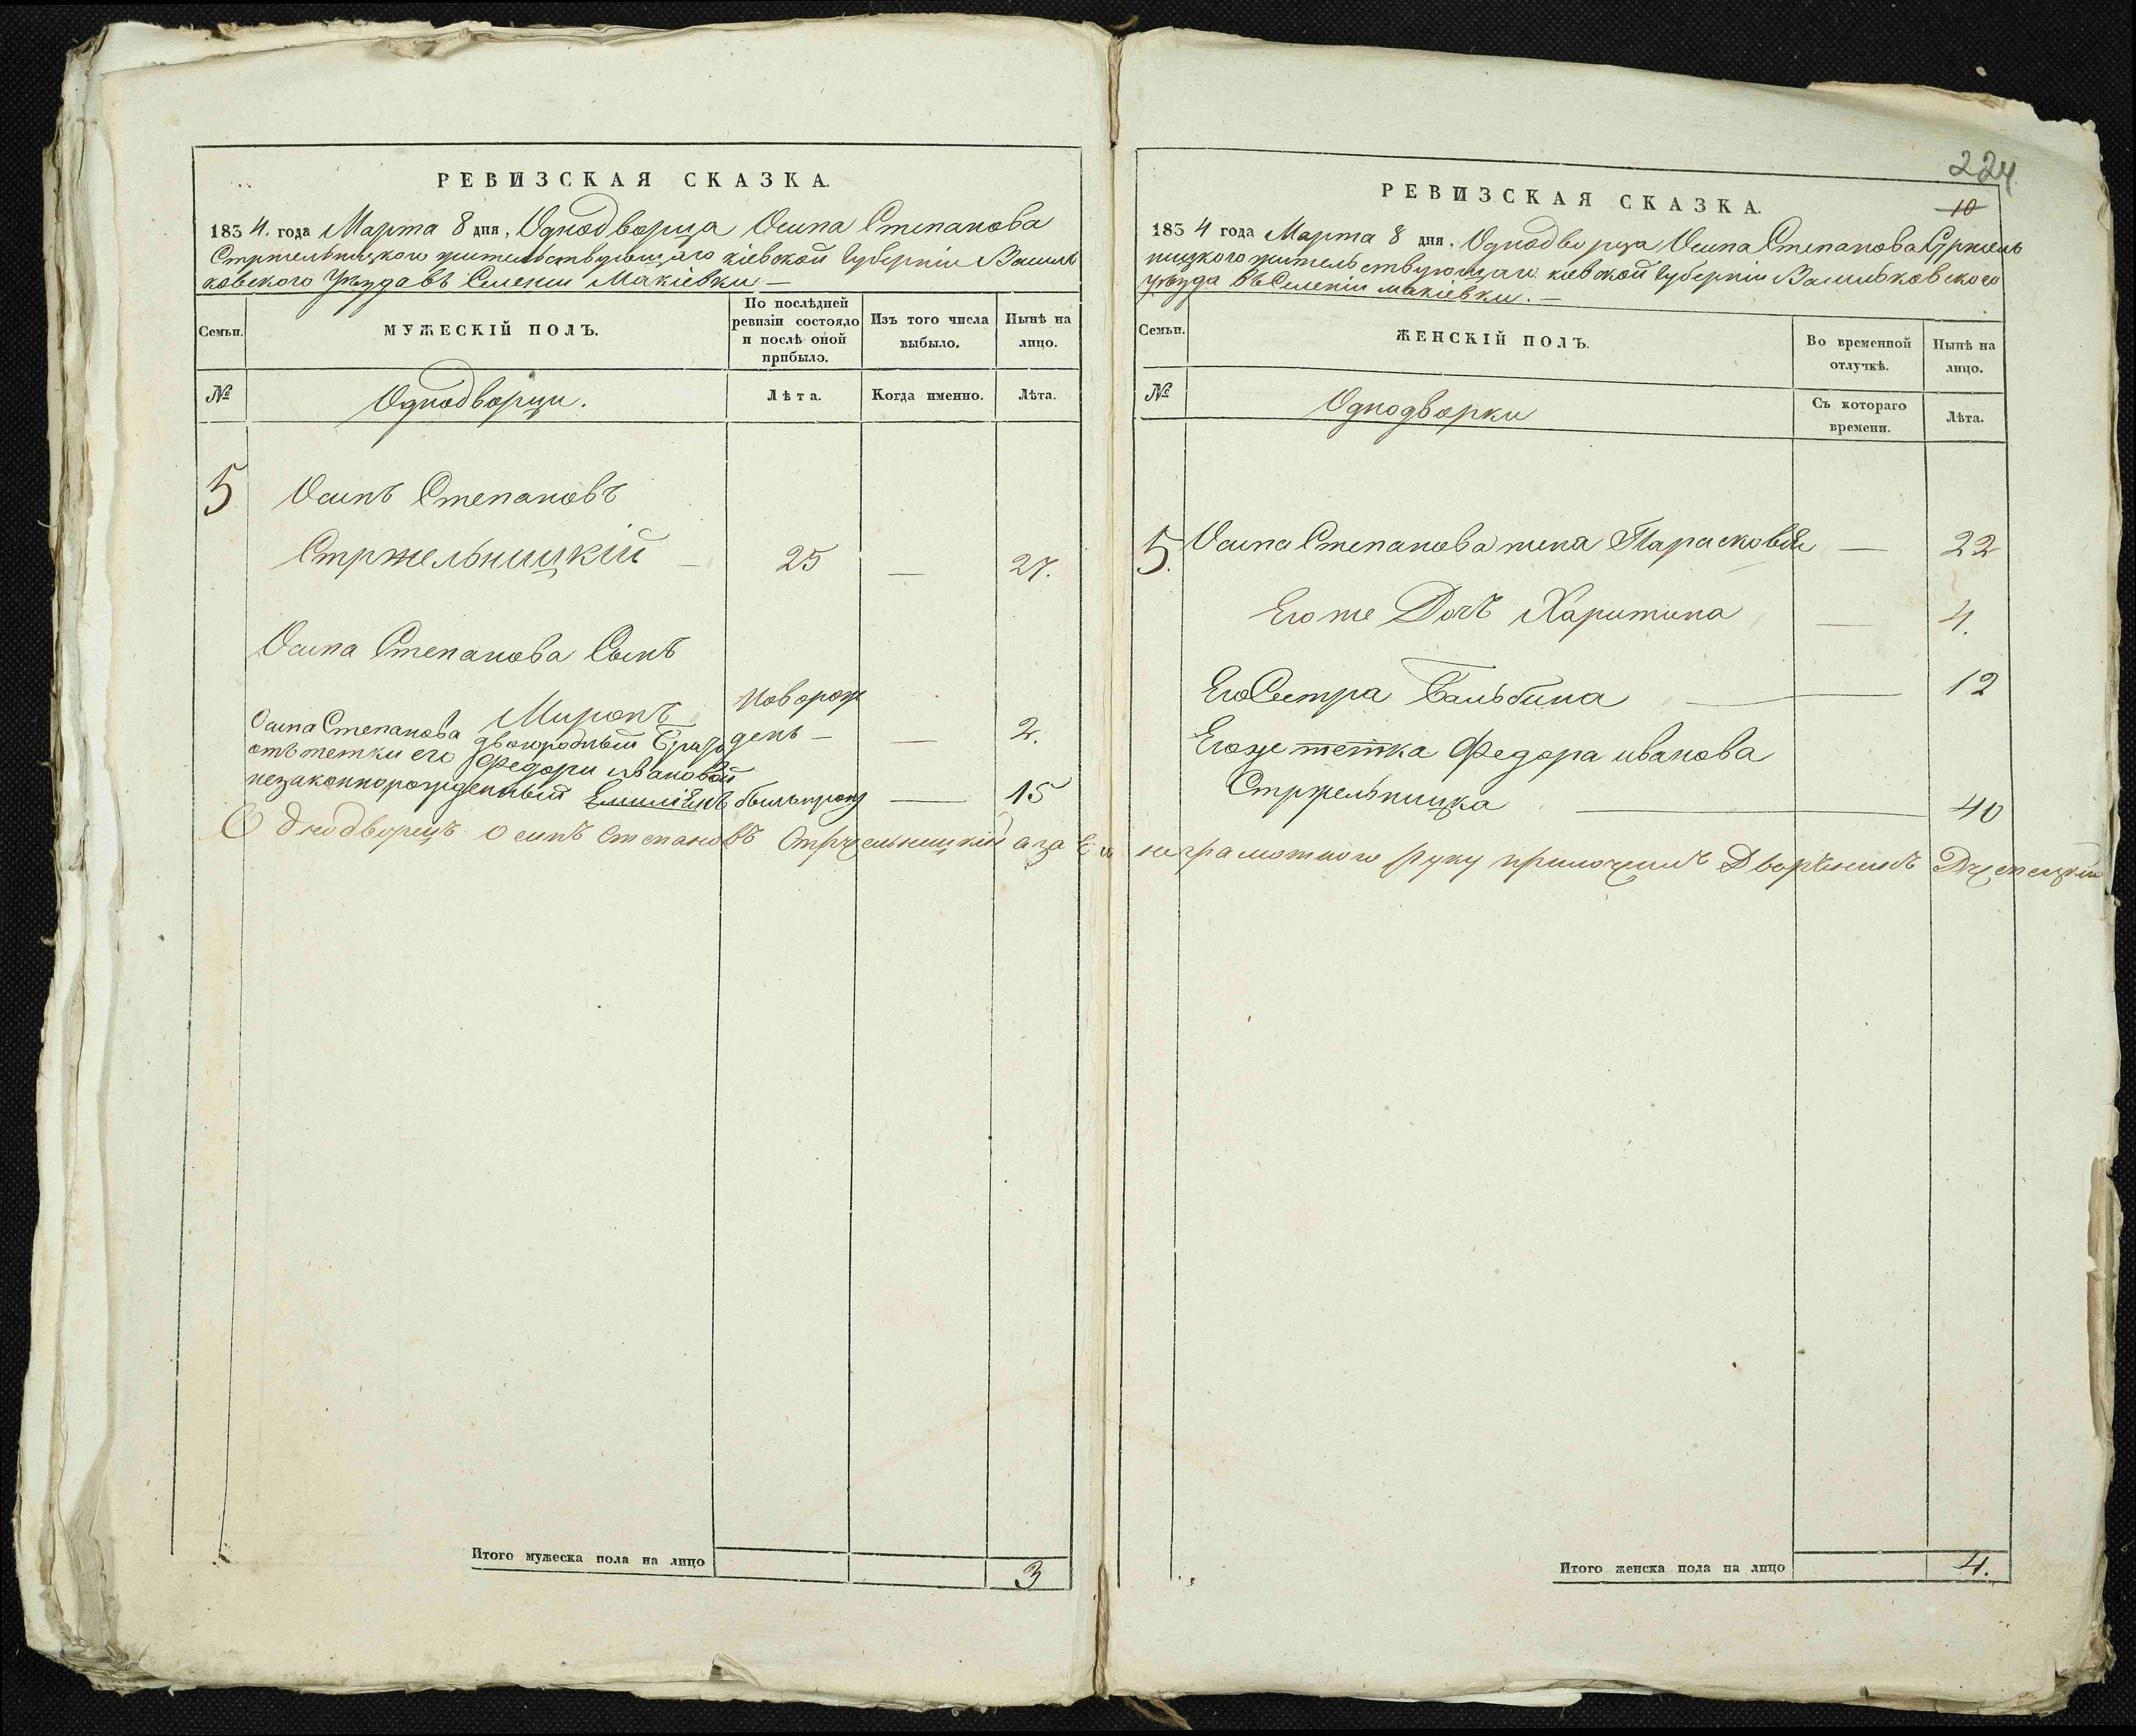 РЕВИЗСКАЯ СКАЗКА.
1834. года Марта 8 дня, Однодворца Осипа Степанова
Стржельницкого жительствующаго кіевской Губерніи Василь
ковского Уѣзда въ Селеніи Макіевки —
Семьи.
МУЖЕСКІЙ ПОЛЪ.
По послѣдней
ревизіи состояло
и послѣ оной
прибыло.
Изъ того числа
выбыло.
Нынѣ на
лицо.
№
Однодворци.
Лѣта.
Когда именно.
Лѣта.
5 Осипъ Степановъ
Стржельницкій — 25 — 27.
Осипа Степанова Сынъ
Миронъ Новорож
денъ — — 2.
Осипа Степанова двоюродный братъ
отъ тетки его Федори Ивановой
незаконнорожденный былъ — 15
Однодворецъ Осипъ Степановъ Стржельницкій а за Его неграмотного руку приложилъ Дворенинъ
Итого мужеска пола на лицо 3
224
10
РЕВИЗСКАЯ СКАЗКА.
1834 года Марта 8 дня. Однодворца Осипа Степанова Стржель
ницкого жительствующаго кіевской Губерніи Васильковского
уѣзда въ Селеніи макіевки. —
Семьи.
ЖЕНСКІЙ ПОЛЪ.
Во временной
отлучкѣ.
Нынѣ на
лицо.
№
Однодворки
Съ котораго
времени.
Лѣта.
5. Осипа Степанова жена Парасковія — 22
Его же Дочь Харитина — 4.
Его Сестра Бальбина — 12
Его же тетка Федора иванова
Стржельницка — 40
Итого женска пола на лицо 4.